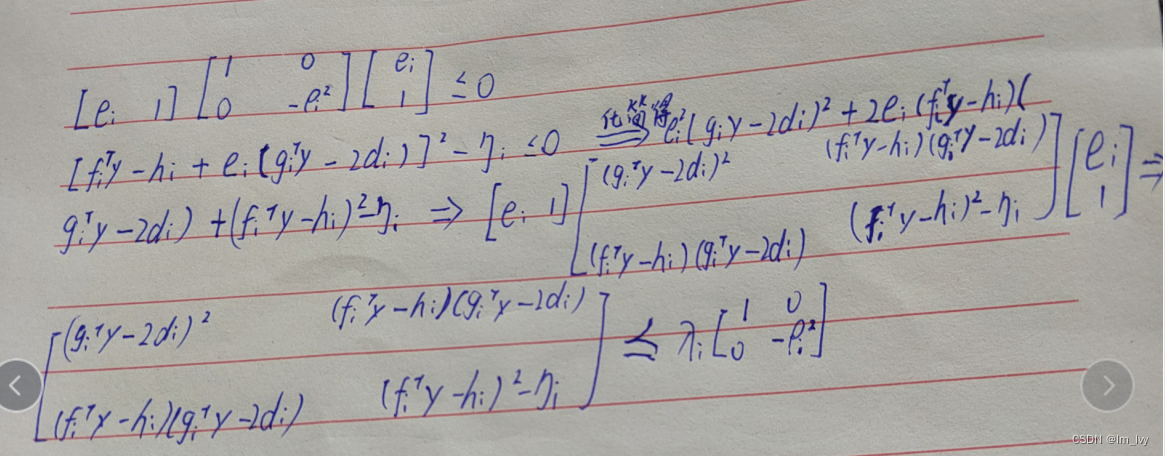 [eᵢ 1] [1 0; 0 -ρᵢ²] [eᵢ; 1] ≤ 0
[fᵢᵀy - hᵢ + eᵢ(gᵢᵀy - 2dᵢ)]² - ηᵢ ≤ 0 化简得⟹ eᵢ²(gᵢy - 2dᵢ)² + 2eᵢ(fᵢᵀy - hᵢ)(
gᵢᵀy - 2dᵢ) + (fᵢᵀy - hᵢ)² - ηᵢ ⇒ [eᵢ 1] [(gᵢᵀy - 2dᵢ)² (fᵢᵀy - hᵢ)(gᵢᵀy - 2dᵢ); (fᵢᵀy - hᵢ)(gᵢᵀy - 2dᵢ) (fᵢᵀy - hᵢ)² - ηᵢ] [eᵢ; 1] ⇒
[(gᵢᵀy - 2dᵢ)² (fᵢᵀy - hᵢ)(gᵢᵀy - 2dᵢ); (fᵢᵀy - hᵢ)(gᵢᵀy - 2dᵢ) (fᵢᵀy - hᵢ)² - ηᵢ] ⪯ λᵢ [1 0; 0 -ρᵢ²]
CSDN @Im_Ivy